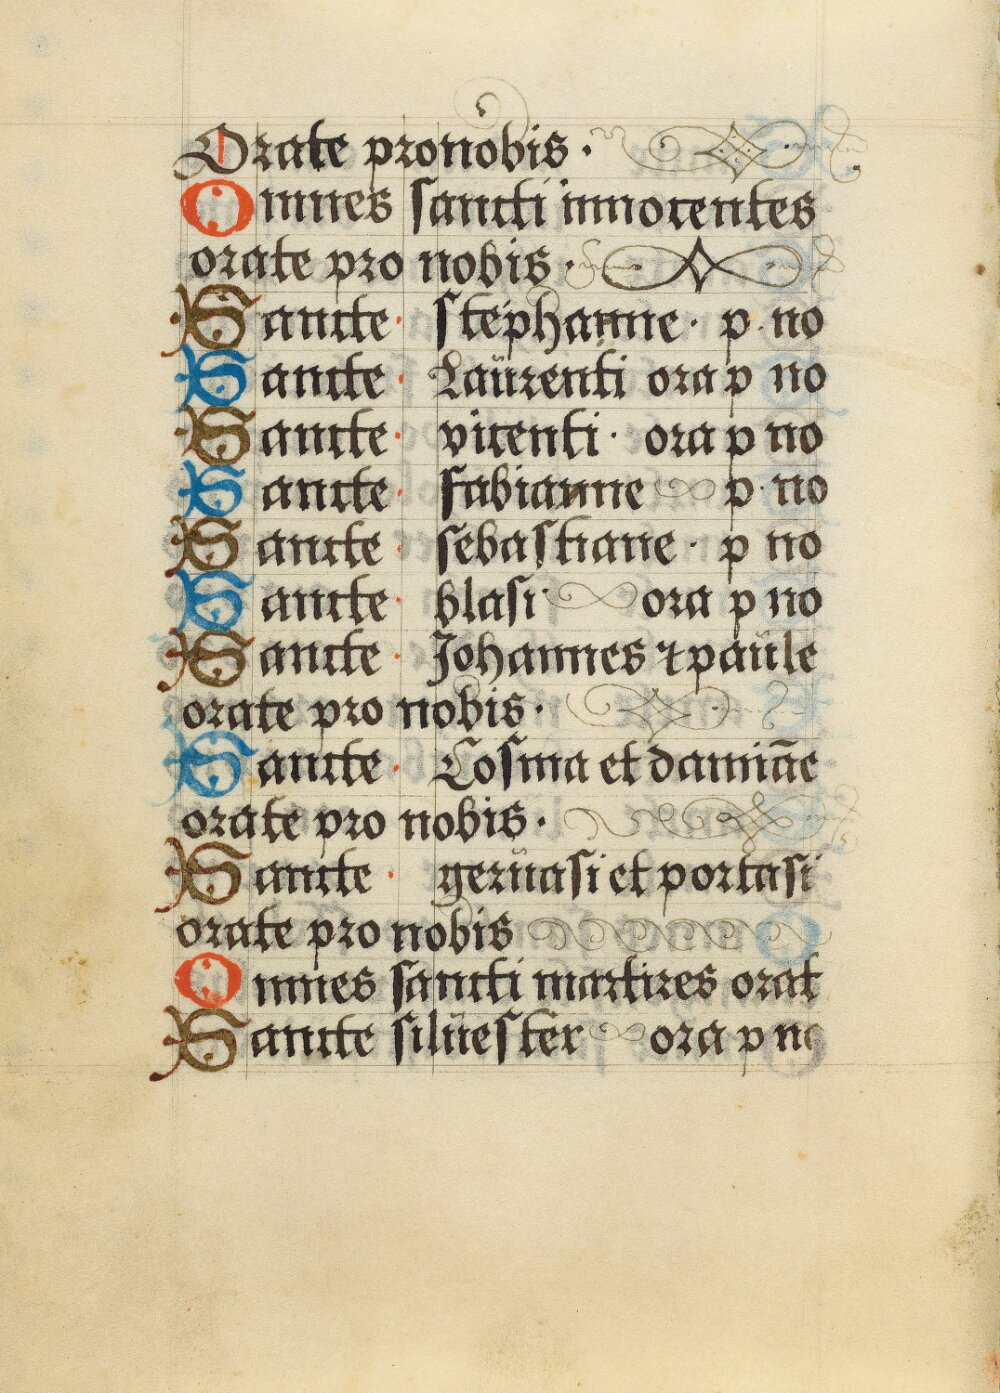 Orate pro nobis ·
Omnes sancti innocentes
orate pro nobis ·
Sancte · stephanne · p · no
Sancte · Laurenti ora p no
Sancte · vicenti · ora p no
Sancte · fabianne p · no
Sancte · sebastiane · p no
Sancte · blasi ora p no
Sancte · Johannes et paule
orate pro nobis ·
Sancte · Cosma et damiāe
orate pro nobis ·
Sancte · geruasi et portasi
orate pro nobis
Omnes sancti martires orat
Sancte siluester ora p no